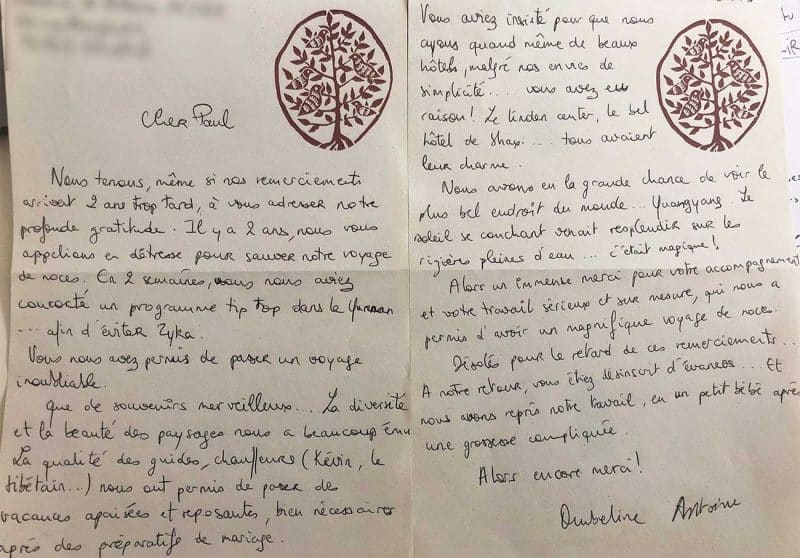 Cher Paul
Nous tenons, même si nos remerciements
arrivent 2 ans trop tard, à vous adresser notre
profonde gratitude. Il y a 2 ans, nous vous
appelions en détresse pour sauver notre voyage
de noces. En 2 semaines, vous nous aviez
concocté un programme tip top dans le Yunnan
... afin d'éviter Zyka.
Vous nous avez permis de passer un voyage
inoubliable.
Que de souvenirs merveilleux... La diversité
et la beauté des paysages nous a beaucoup ému
La qualité des guides, chauffeurs (Kévin, le
tibétain...) nous ont permis de passer des
vacances apaisées et reposantes, bien nécessaires
après des préparatifs de mariage.
Vous aviez insisté pour que nous
ayons quand même de beaux
hôtels, malgré nos envies de
simplicité.... vous avez eu
raison! Le linden center, le bel
hôtel de Shaxi.... tous avaient
leur charme.
Nous avons eu la grande chance de voir le
plus bel endroit du monde... Yuangyang. Le
soleil se couchant venait resplendir sur les
rizières pleines d'eau... c'était magique!
Alors un immense merci pour votre accompagnement
et votre travail sérieux et sur mesure, qui nous a
permis d'avoir un magnifique voyage de noces.
Désolés pour le retard de ces remerciements...
A notre retour, vous étiez désinscrit d'évaneos... Et
nous avons repris notre travail, eu un petit bébé après
une grossesse compliquée.
Alors encore merci!
Ombeline Antoine